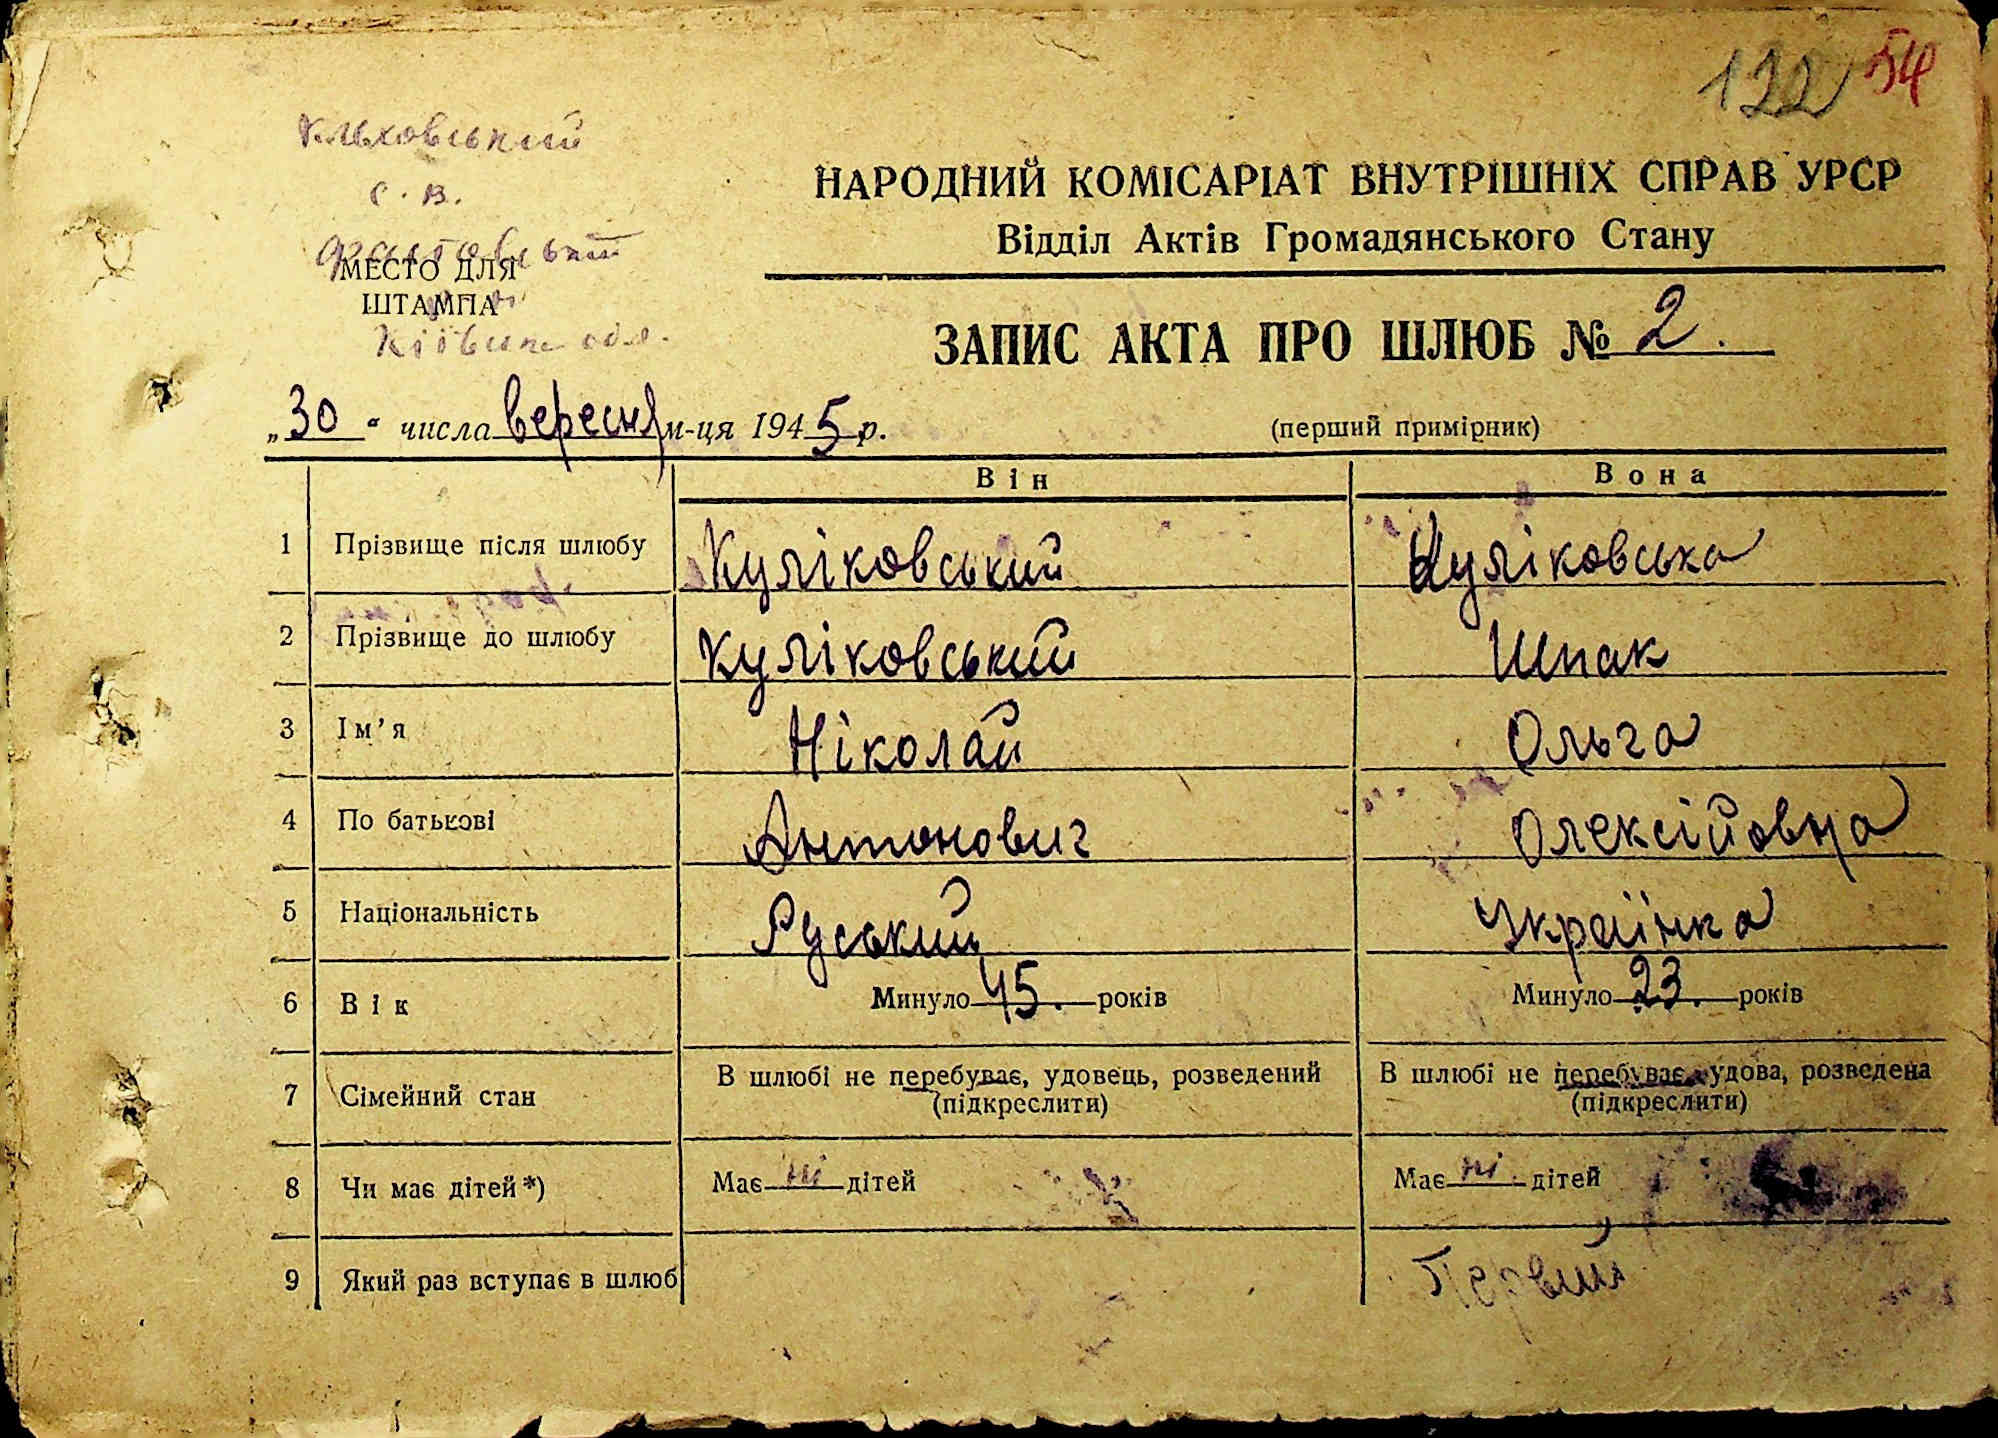 122 54
с. в.
НАРОДНИЙ КОМІСАРІАТ ВНУТРІШНІХ СПРАВ УРСР
Відділ Актів Громадянського Стану
МЕСТО ДЛЯ
ШТАМПА
обл.
ЗАПИС АКТА ПРО ШЛЮБ № 2.
„30“ числа вересня м-ця 1945 р.
(перший примірник)
Він Вона
1 Прізвище після шлюбу Куліковський Куліковська
2 Прізвище до шлюбу Куліковський Шпак
3 Ім’я Ніколай Ольга
4 По батькові Антонович Олексійовна
5 Національність Руський Украінка
6 Вік Минуло 45. років Минуло 23. років
7 Сімейний стан В шлюбі не перебуває, удовець, розведений В шлюбі не перебуває, удова, розведена
(підкреслити) (підкреслити)
8 Чи має дітей*) Має ні дітей Має ні дітей
9 Який раз вступає в шлюб Первий